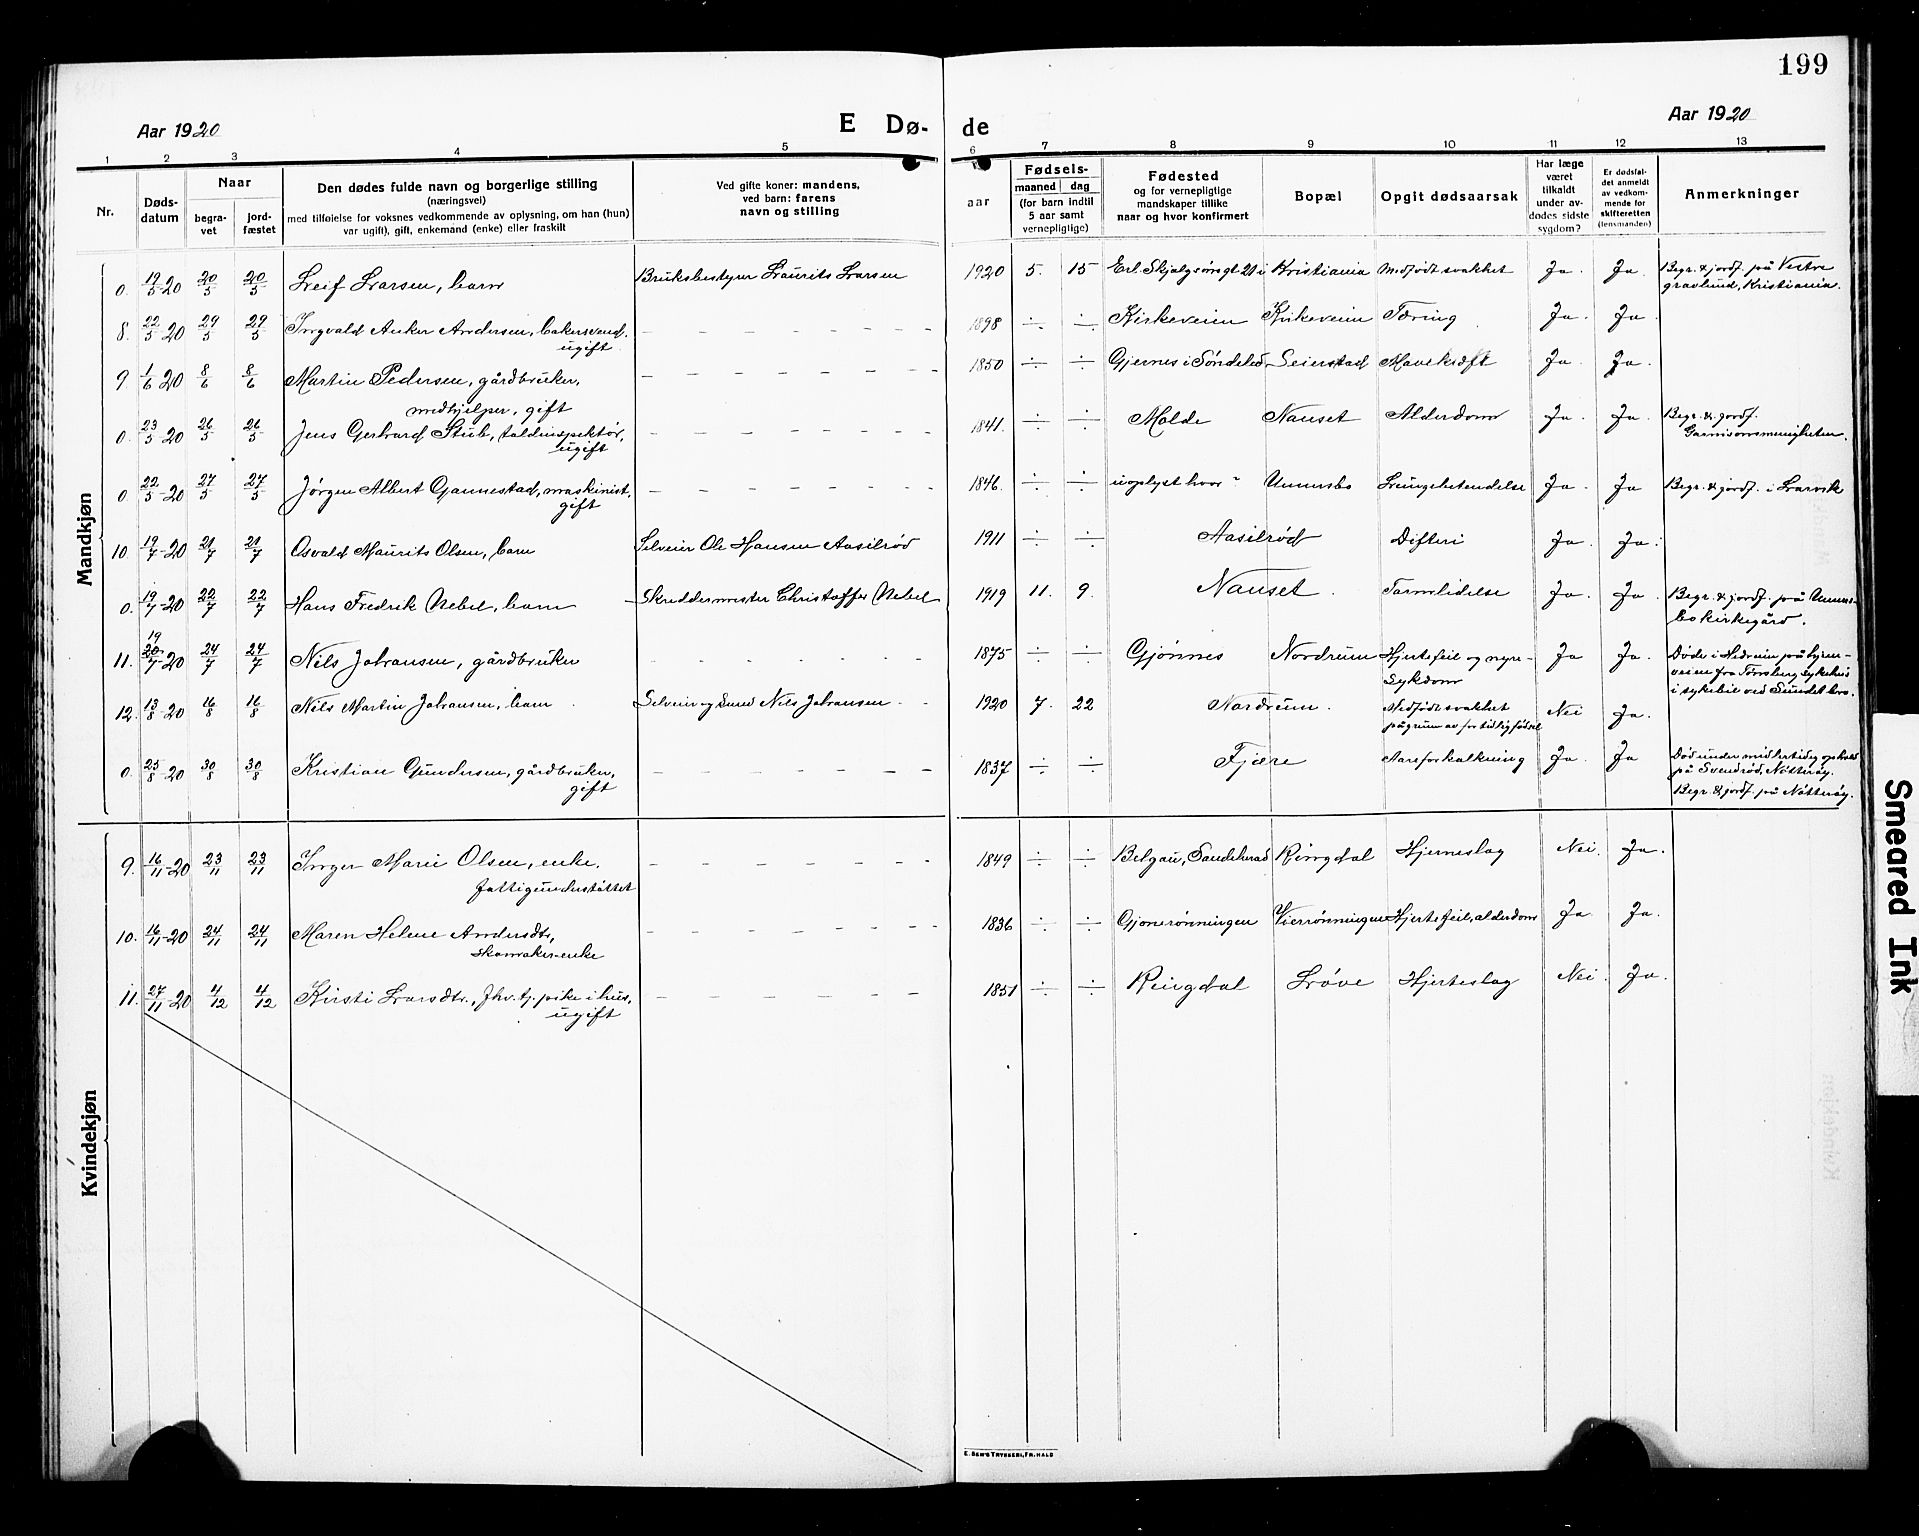 199
Aar 1920
E Dø-
de
Aar 1920
1 2 3 4 5 6 7 8 9 10 11 12 13
Nr.
Døds-
datum
Naar
begra-
vet
jord-
fæstet
Den dødes fulde navn og borgerlige stilling
(næringsvei)
med tilføielse for voksnes vedkommende av oplysning, om han (hun)
var ugift), gift, enkemand (enke) eller fraskilt
Ved gifte koner: mandens,
ved barn: farens
navn og stilling
Fødsels-
aar
maaned
dag
(for barn indtil
5 aar samt
vernepligtige)
Fødested
og for vernepligtige
mandskaper tillike
naar og hvor konfirmert
Bopæl
Opgit dødsaarsak
Har læge
været
tilkaldt
under av-
dødes sidste
sygdom?
Er dødsfal-
det anmeldt
av vedkom-
mende for
skifteretten
(lensmanden)
Anmerkninger
Mandkjøn
0. 19/5-20 20/5 20/5 Leif Larsen, barn Bruksbestyrer Laurits Larsen 1920 5. 15 Erl. Skjalgsønsgt 21 i Kristiania Medfødt svakhet Ja. Ja. Begr. & jordf. på Vestre
gravlund, Kristiania.
8. 22/5-20 29/5 29/5 Ingvald Anker Andersen, bakersvend. – – – – – – – – 1898 ÷ ÷ Kirkeveien Kirkeveien Tæring Ja. Ja.
ugift.
9. 1/6-20 8/6 8/6 Martin Pedersen, gårdbruker, – – – – – – – – 1850 ÷ ÷ Gjernes i Søndeled Seierstad Mavekræft Ja. Ja.
medhjelper, gift
0. 23/5-20 26/5 26/5 Jens Gerhard Stub, toldinspektør, – – – – – – – – 1841. ÷ ÷ Molde Nauset Alderdom Ja. Ja. Begr. & jordf.
ugift Garnisonsmenigheten.
0. 22/5-20 27/5 27/5 Jørgen Albert Gannestad, maskinist, – – – – – – – – 1846. ÷ ÷ uoplyst hvor Unnersbo Lungebetendelse Ja. Ja Begr. & jordf. i Larvik
gift
10. 19/7-20 21/7 21/7 Osvald Maurits Olsen, barn Selveier Ole Hansen Aasilrød 1911 ÷ ÷ Aasilrød Difteri Ja. Ja.
0. 19/7-20 22/7 22/7 Hans Fredrik Nebel, barn Skreddermester Christoffer Nebel 1919 11. 9. Nauset. Tarmlidelse Ja. Ja. Begr. & jordf. på Unners-
bo kirkegård.
19
11. 20/7-20 24/7 24/7 Nils Johansen, gårdbruker – – – – – – – – 1875 ÷ ÷ Gjønnes Nordrum Hjertefeil og nyre- Ja Ja. Døde i Hedrum på hjem-
sykdom veien fra Tønsberg sykehus
i sykebil ved Sundet bro.
12. 13/8-20 16/8 16/8 Nils Martin Johansen, barn. Selveier og Nils Johansen 1920 7. 22 Nordrum. Medfødt svakhet Nei Ja.
på grunn av for tidlig fødsel
0. 25/8-20 30/8 30/8 Kristian Gundersen, gårdbruker, – – – – – – – – 1837 ÷ ÷ Fjære Aareforkalkning Ja. Ja Død under midlertidig ophold
gift på Svendrød, Nøtterøy.
Begr. & jordf. på Nøtterøy.
Kvindekjøn
9. 16/11-20 23/11 23/11 Inger Marie Olsen, enke. – – – – – – – – 1849 ÷ ÷ Belgau, Sandeherad Ringdal Hjerneslag Nei. Ja.
fattigunderstøttet
10. 16/11-20 24/11 24/11 Maren Helene Andersdtr, – – – – – – – – 1836 ÷ ÷ Gjonerønningen Vierrønningen Hjertefeil, alderdom Ja Ja.
skomaker-enke
11. 27/11-20 4/12 4/12 Kirsti Larsdtr., fhv. tj. pike i hus, – – – – – – – – 1851 ÷ ÷ Ringdal Løve Hjerteslag Nei. Ja.
ugift
E. SEM'S TRYKKERI, FR.HALD
Smeared Ink